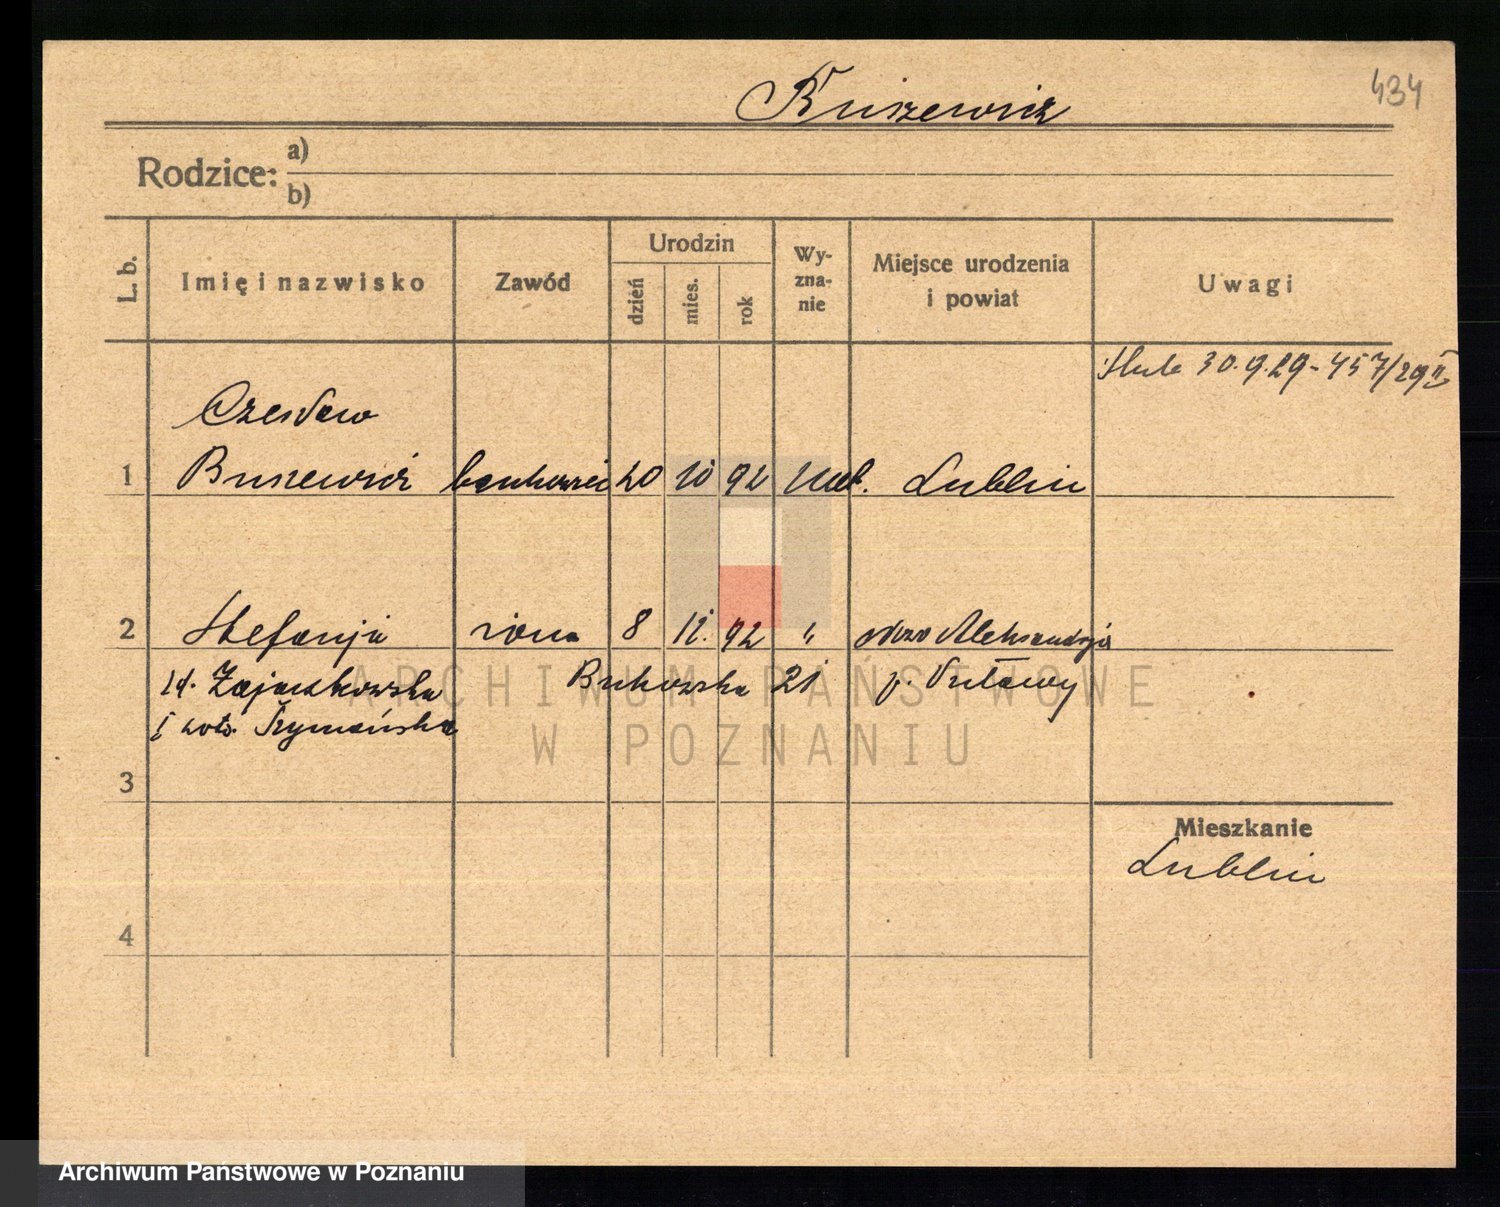 434
Ruszewicz
Rodzice:
a)
b)
L. b.
Imię i nazwisko
Zawód
Urodzin
dzień
mies.
rok
Wy-
zna-
nie
Miejsce urodzenia
i powiat
Uwagi
30.9.29 - 457/29 II
Czesław
1 Ruszewicz bankowiec 20 10 92 kat. Lublin
2 Stefanja żona 8 12. 92 " Aleksandrja
Zajączkowska Bukowska 21 p. Puławy
I voto. Szymańska
3
4
Mieszkanie
Lublin
ARCHIWUM PAŃSTWOWE
W POZNANIU
Archiwum Państwowe w Poznaniu